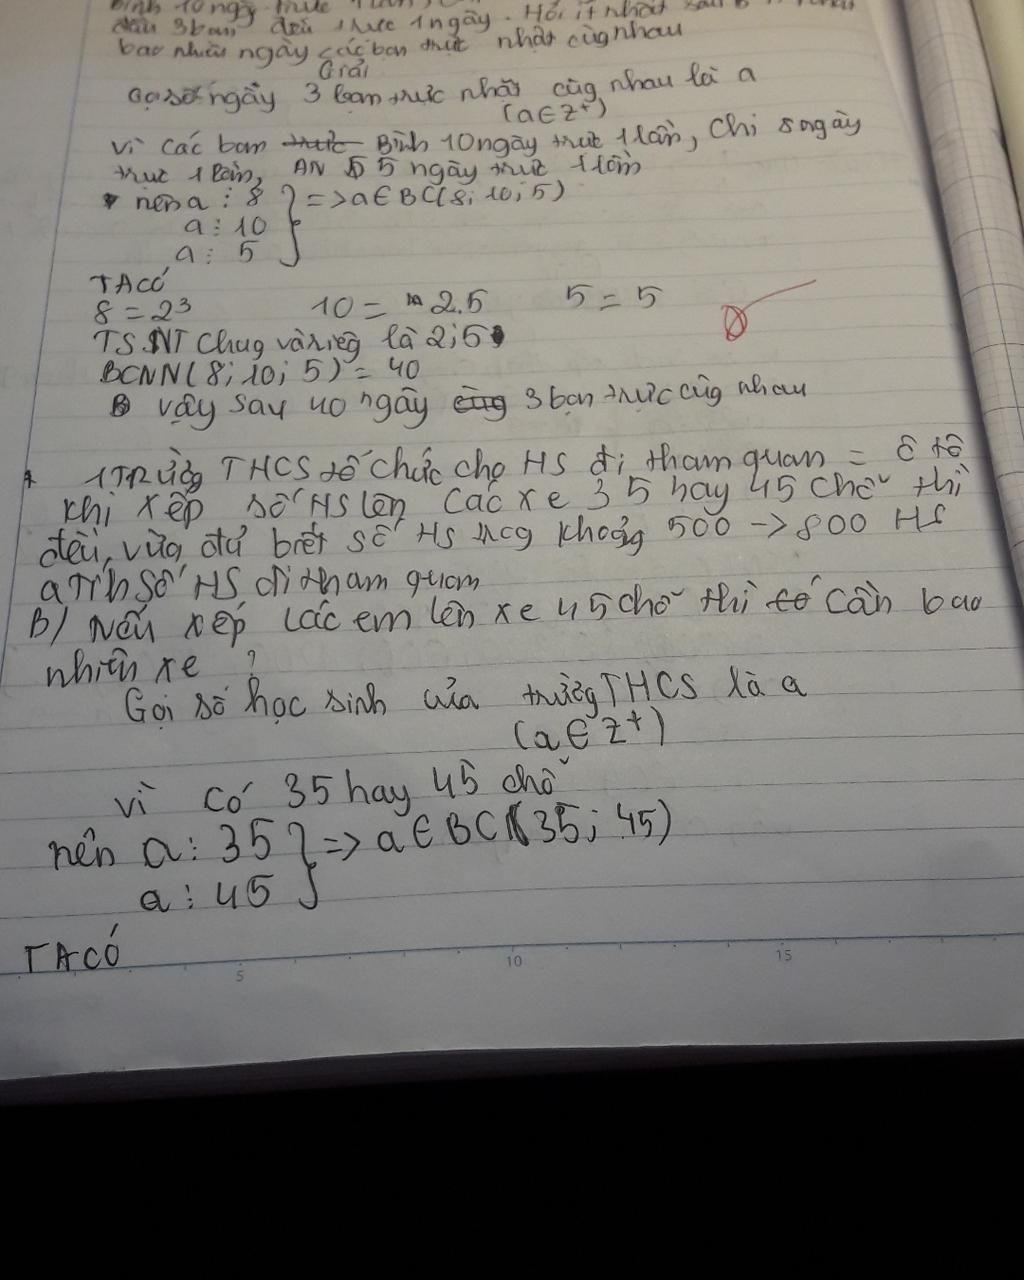 Bình 10 ngày trực 1 lần,
đầu 3 bạn đều trực 1 ngày. Hỏi ít nhất sau
bao nhiêu ngày các bạn trực nhật cùg nhau
Giải
Gọi số ngày 3 bạn trực nhật cùg nhau là a
(a ∈ Z⁺)
vì các bạn trực Bình 10 ngày trực 1 lần, Chi 8 ngày
trực 1 lần, AN 5 5 ngày trực 1 lần
nên a ⋮ 8 } => a ∈ BC(8; 10; 5)
a ⋮ 10
a ⋮ 5
TA CÓ
8 = 2³ 10 = 2.5 5 = 5
TSNT Chug và riêg là 2; 5
BCNN(8; 10; 5) = 40
vậy sau 40 ngày cùg 3 bạn trực cùg nhau
1 Trường THCS tổ chức cho HS đi tham quan = ô tô
khi xếp số HS lên các xe 35 hay 45 chỗ thì
đều vừa đủ biết số HS trog khoảg 500 -> 800 HS
a Tính số HS đi tham quan
B) Nếu xếp các em lên xe 45 chỗ thì có cần bao
nhiêu xe ?
Gọi số học sinh của trườg THCS là a
(a ∈ Z⁺)
vì có 35 hay 45 chỗ
nên a ⋮ 35 } => a ∈ BC (35; 45)
a ⋮ 45
TA CÓ
5 10 15